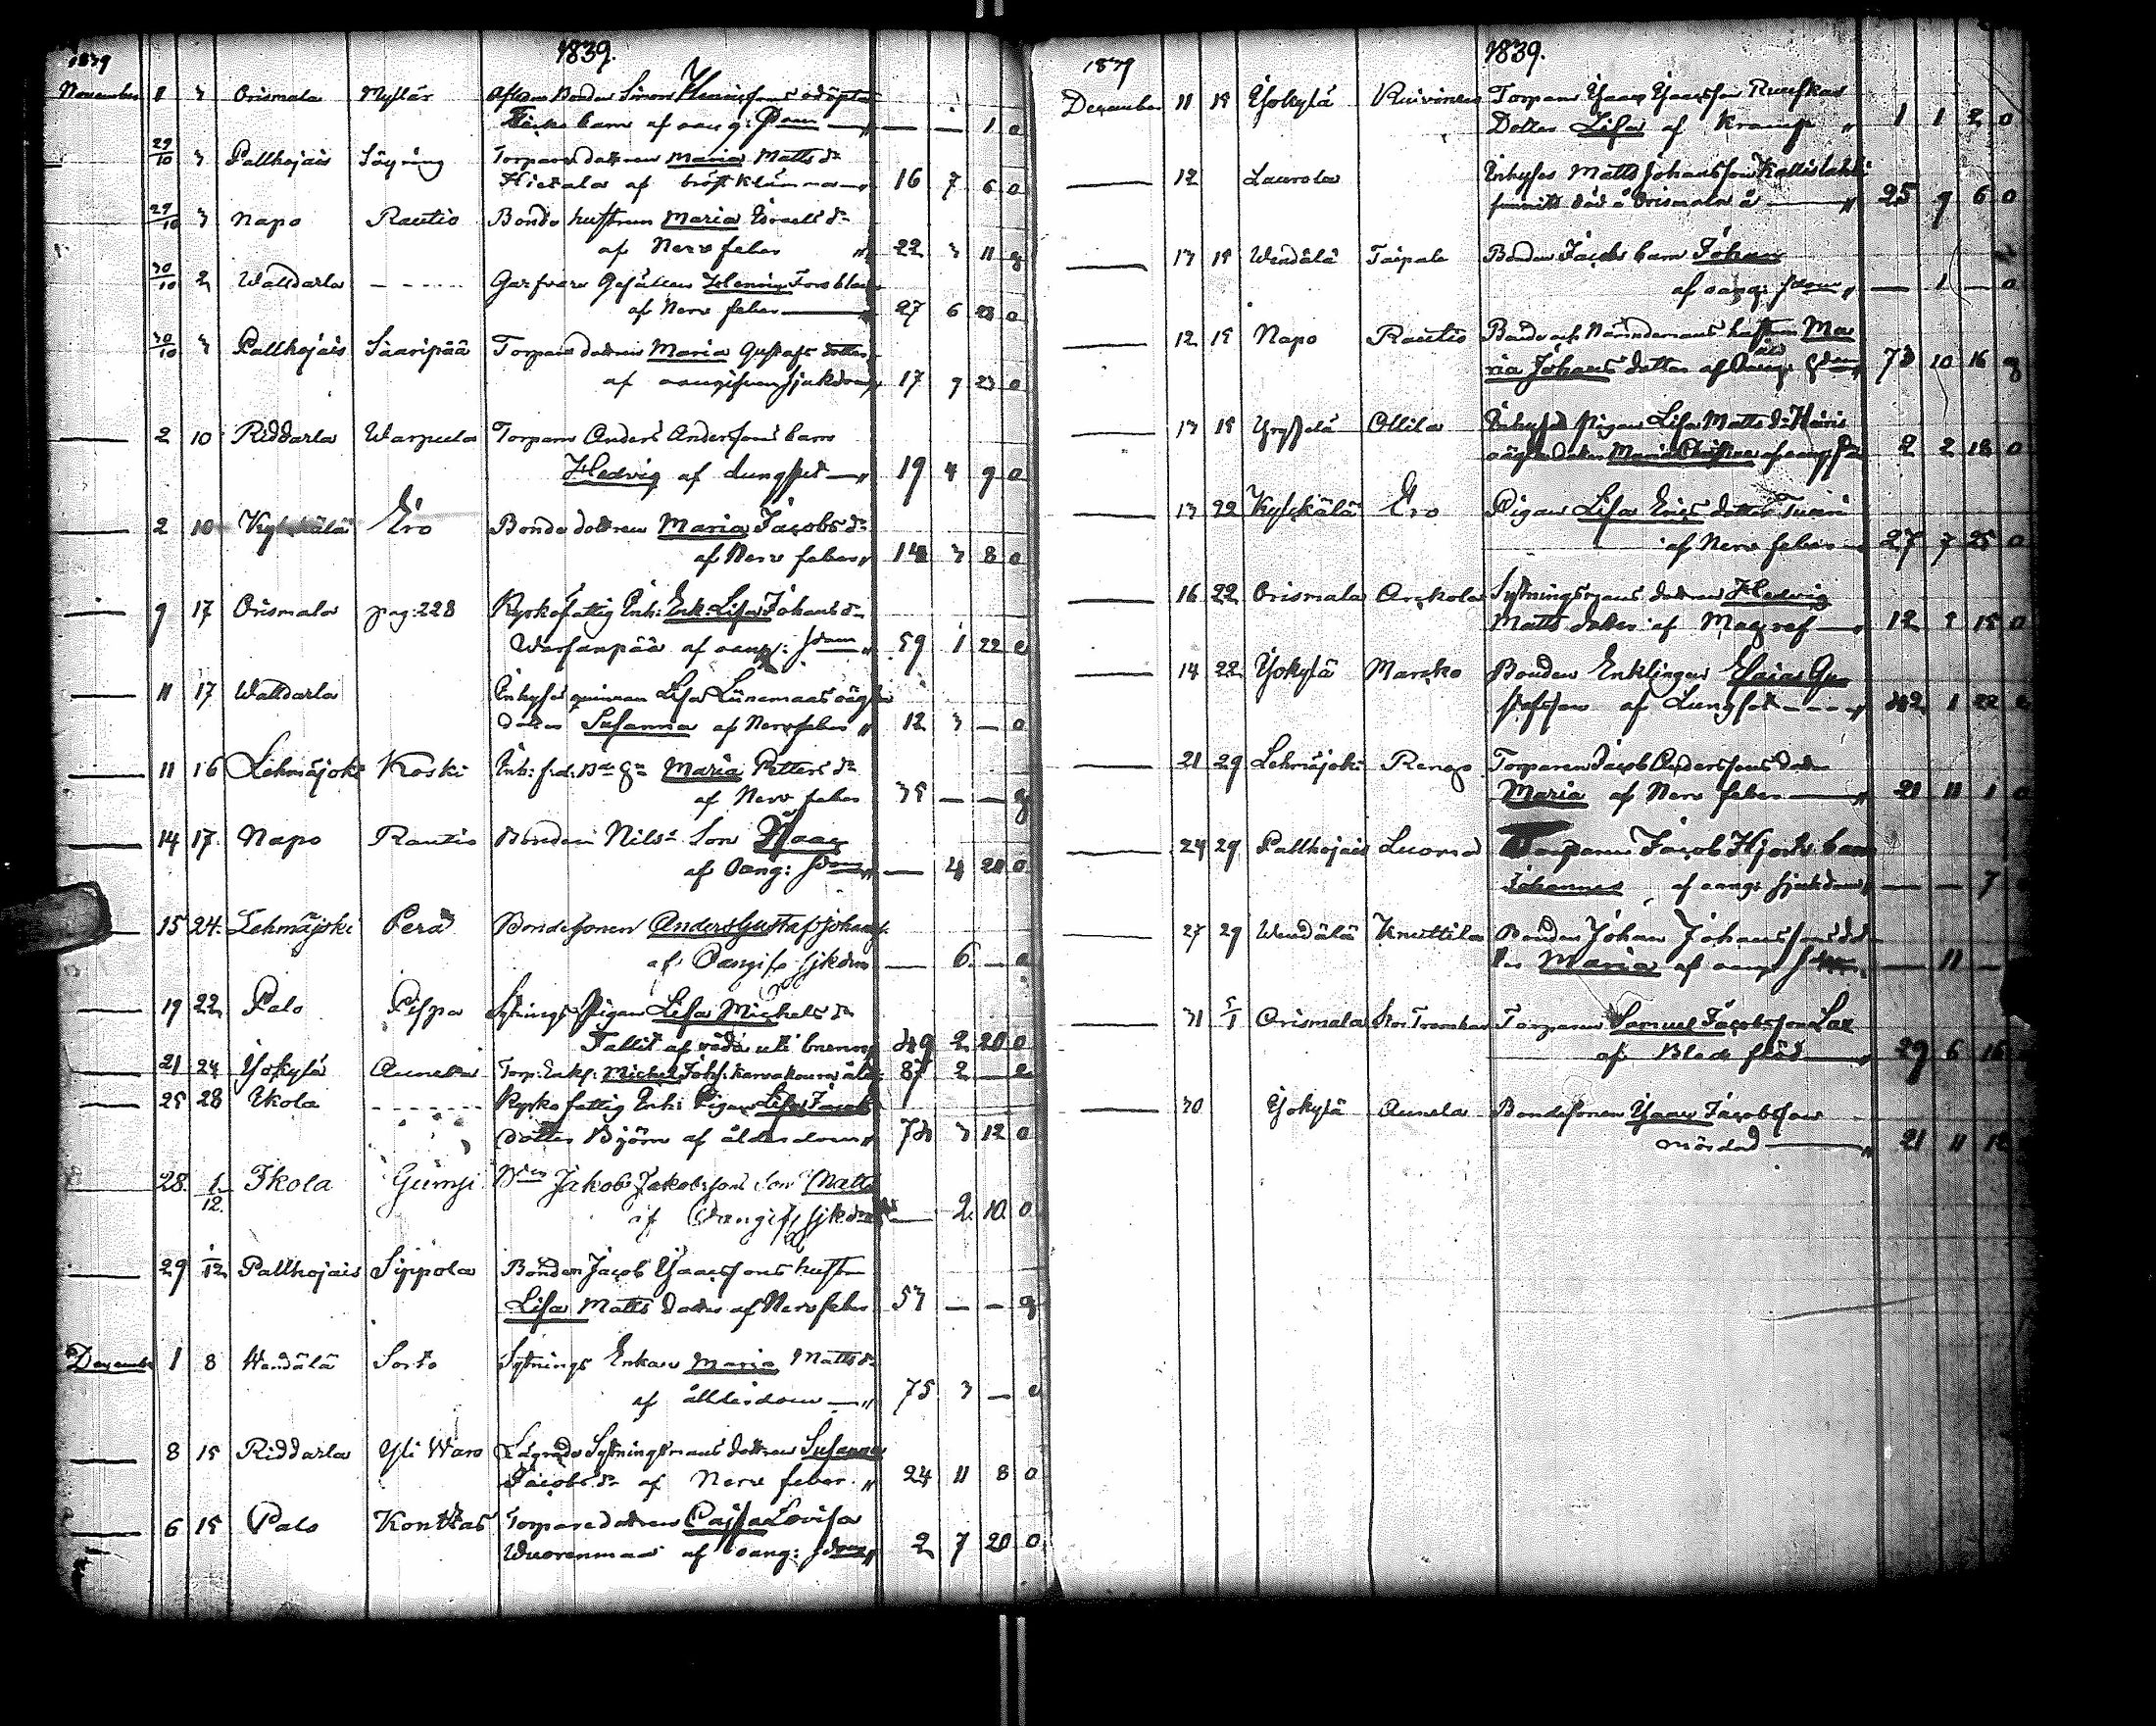 1839
1839.
November 1 3 Orismala Mylläri Afledne Bonden Simon odöpta
barn af oang: sjdom — — 1 o
29/10 3 Palhojais Söyring Torpare dottren Maria Matts dr
Hietala af bröst klämma 16 7 6 o
29/10 3 Napo Rautio Bonde hustrun Maria Israels dr
af Nerv feber 22 3 11 g
30/10 2 Walldarla - - - - Garfvare Gesällen Henric Forsblad
af Nerv feber 27 6 28 o
30/10 3 Palhojais Saaripää Torpare dottren Maria Gustafs dotter
af oangifven sjukdom 17 9 23 o
2 10 Riddarla Warpula Torparn Anders Anderssons barn
Hedvig af Lungsot 19 4 9 o
2 10 Kylkkälä Ero Bonde dottren Maria Jacobs dr
af Nerv feber 14 3 8 o
9 17 Orismala pag: 228 Kyrkofattig Enk: Lisa Johans dr
Warsanpää af oang: sjdom 59 1 22 e
11 17 Walldarla Inhyses qvinnan Lisa Liinamaas oägta
dotter Susanna af Nerv feber 12 3 — o
11 16 Lehmäjoki Koski Inh: Maria Petters dr
af Nerv feber 35 — — g
14 17. Napo Rautio Bonden Nils Son Isaac
af Oang: sjdom — 4 20 o
15 24. Lehmäjoki Perä Bondesonen Anders Gustaf Johans:
af Oangifv sjkdom — 6 — o
19 22 Palo Pispa Sytnings Pigan Lisa Michels dr
Fallit af våda uti brunn 49 2 20 o
21 24 Yokylä Aunela Torp: Enkl: Michel Johs: ålder 87 2 — e
25 28 Ikola - - - - Kyrko fattig Enh: Pigan Lisa Jacobs
dotter Björn af ålderdom 74 3 12 o
28. 1/12. Ikola Gumsi Jakob Jakobssons Son Matts
af Oangifv sjkdom — 2 10 o
29 1/12 Palhojais Sippola Bonden Jacob Isaacssons hustru
Lisa Matts dotter af Nerv feber 57 — — g
December 1 8 Wendälä Sorto Sytnings Enkan Maria Matts dr
af ållderdom 75 3 — e
8 15 Riddarla Yli Waro Sytningsmans dottren Susanna
Jacobs dr af Nerv feber 24 11 8 o
6 15 Palo Konttas Torpare dottren Cajsa Lovisa
Wuorenmaa af oang: sjdom 2 7 20 o
1839
1839.
December 11 15 Yokylä Ruivinen Torparn Isaac Isaacsson Ruuskas
Dotter Lisa af Kramp 1 1 2 o
12 Laurola Inhyses Matts Johansson Kallislahti
funnits död å Orismala å 25 9 6 o
13 15 Wendälä Taipale Bonden Jacobs barn Johan
af oang: sjdom — 1 — o
12 15 Napo Rautio Bonde och Nämndemans hustrun Ma
ria Johans dotter af Oang: sjdom 73 10 16 g
13 15 Ollila Inhyses Pigan Lisa Matts dr
oägta dotter Maria Christina af oang: 2 2 18 o
13 22 Kylkkälä Ero Pigan Lisa Erics dotter
af Nerv feber 27 7 25 o
16 22 Orismala Arckola Sytningsmans dottren Hedvig
Matts dotter af Magref 12 15 o
14 22 Yokylä Marcko Bonden Enklingen Elias Gu
stafsson af Lungsot 42 1 22 e
21 29 Lehmäjoki Rengo Torparen Jacob Anderssons dotter
Maria af Nerv feber 21 11 1 o
24 29 Palhojais Luoma Torparen Jacob Hjorts barn
Johannes af oang: sjukdom — — 7
27 29 Wendälä Knuttila Bonden Johan Johanssons dot
ter Maria af oang: — 11 —
31 5/1 Orismala Torparen Samuel Jacobsson Lax
af Blod flöd 29 6 16
30 Yokylä Aunela Bondesonen Isaac Jacobsson
mördad 21 11 12